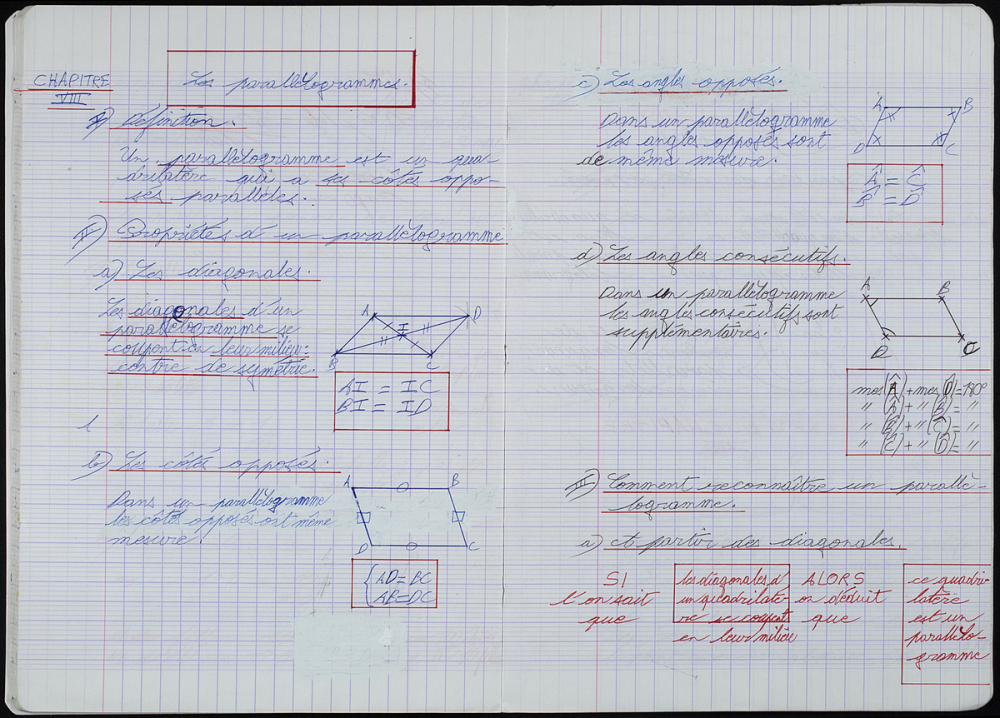 CHAPITRE
VIII
Les parallélogrammes.
I) Définition.
Un parallélogramme est un qua-
drilatère qui a ses côtés oppo-
sés parallèles.
II) Propriétés d'un parallélogramme
a) Les diagonales.
Les diagonales d'un
parallélogramme se
coupent en leur milieu:
centre de symétrie.
A D
I
B C
AI = IC
BI = ID
b) Les côtés opposés.
Dans un parallélogramme
les côtés opposés ont même
mesure.
A B
D C
AD = BC
AB = DC
c) Les angles opposés.
Dans un parallélogramme
les angles opposés sont
de même mesure.
A B
D C
Â = Ĉ
B̂ = D̂
d) Les angles consécutifs.
Dans un parallélogramme
les angles consécutifs sont
supplémentaires.
A B
D C
mes (Â) + mes (D̂) = 180°
" (Â) + " (B̂) = "
" (B̂) + " (Ĉ) = "
" (Ĉ) + " (D̂) = "
III) Comment reconnaître un parallé-
logramme.
a) A partir des diagonales.
SI
l'on sait
que
les diagonales d'
un quadrilatè-
re se coupent
en leur milieu
ALORS
on déduit
que
ce quadri-
latère
est un
parallélo-
gramme